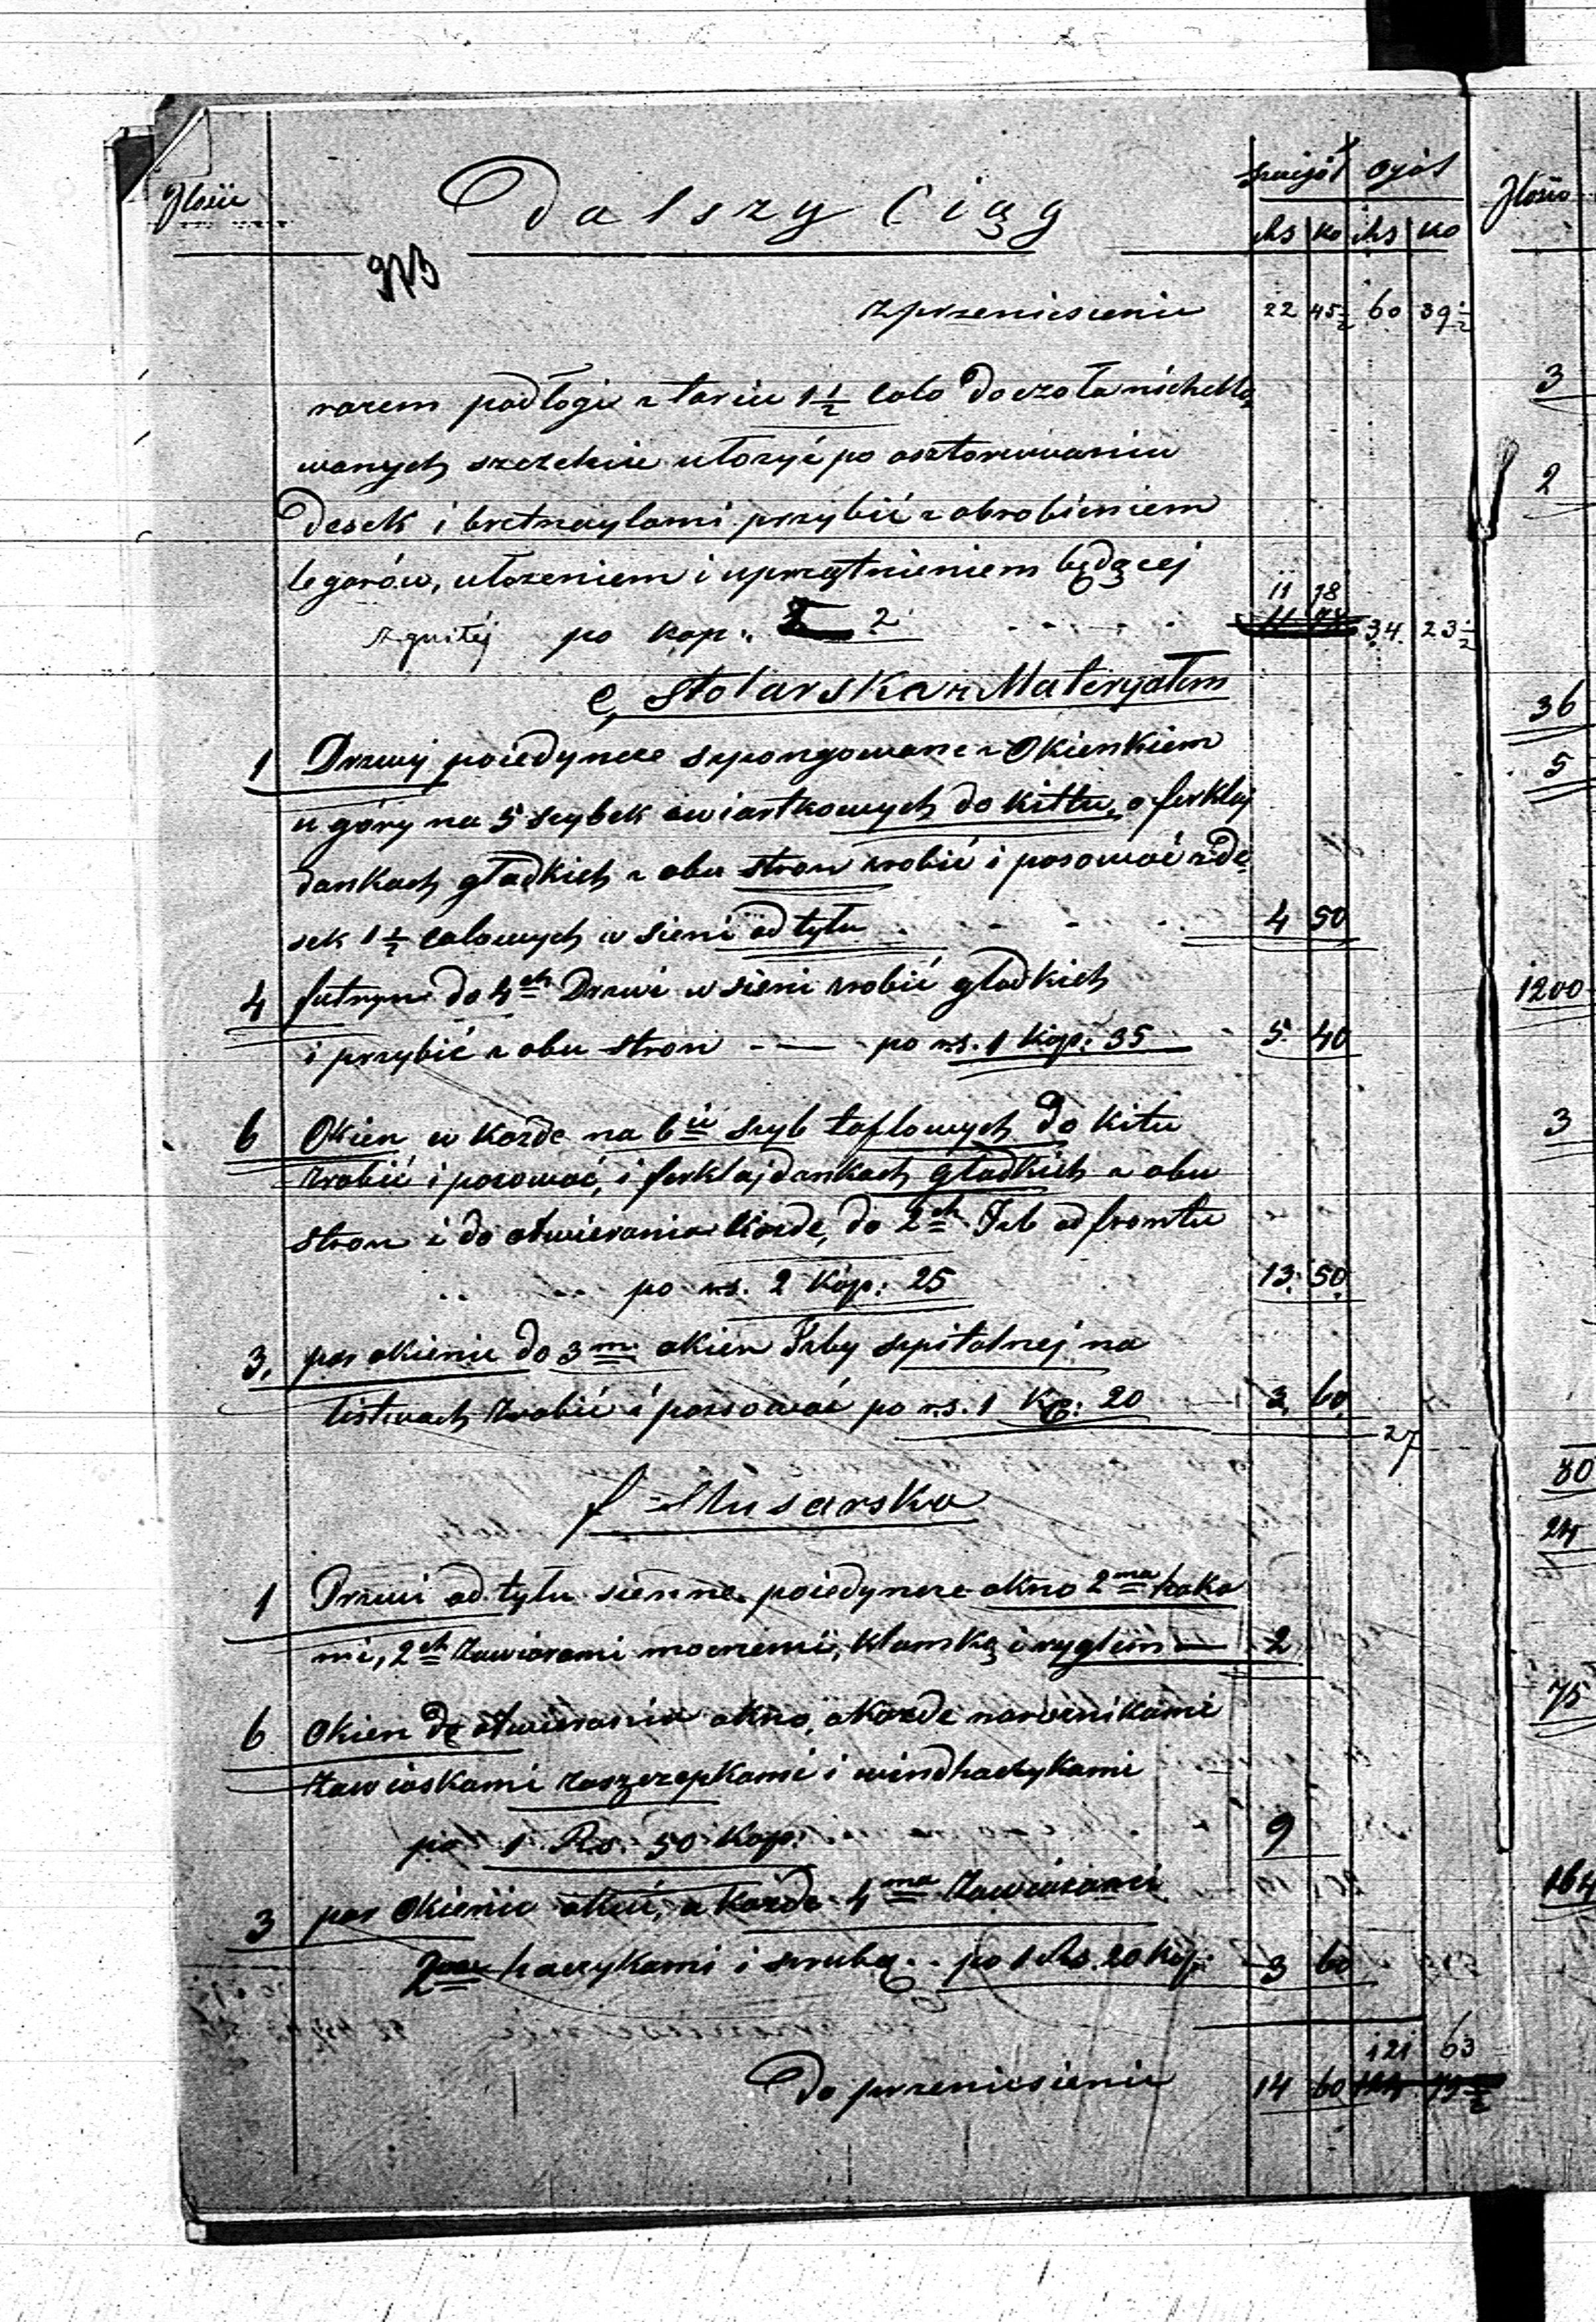 Ilość Dalszy Ciąg szczegół ogół
Rs Ko Rs Ko
z przeniesienia 22 45½ 60 39½
razem podłogi z tarcic 1½ calo do czoła nieheblo
wanych szczelnie ułożyć po osztorcowaniu
desek i bretnaylami przybić z obrobieniem
legarów, ułożeniem i uprzątnieniem będącej
11 78
zgniłej po kop: 2 34 23½
e, Stolarska z Materyałem
1 Drzwi poiedyncze szpongowane z Okienkiem
u góry na 5 szybek ćwiartkowych do kittu, o ferklaj
dankach gładkich z obu stron zrobić i pasować z de
sek 1½ calowych w sieni od tyłu 4 50
4 futryn do 4ch Drzwi w sieni zrobić gładkich
i przybić z obu stron po rs. 1 kop: 35 5 40
6 Okien w każde na 6iu szyb taflowych do kitu
zrobić i pasować, i ferklajdankach gładkich z obu
stron i do otwierania każde, do 2ch Izb od frontu
po rs. 2 kop: 25 13 50
3, par okienic do 3m okien Izby szpitalnej na
listwach zrobić i pasować po rs. 1 Kp: 20 3 60
27
f Slusarska
1 Drzwi od tyłu sienne poiedyncze okno 2ma haka
mi, 2ch zawiasami mocnemi, klamką i ryglem 2
6 Okien do otwierania okno, a każde narożnikami
zawiaskami zaszczepkami i windhaczykami
po 1 Rs. 50 kop: 9
3 par Okienic okuć, a każde 4ma zawiasami
2ma haczykami i szrubą po 1 Rs. 20 kop: 3 60
121 63
Do przeniesienia 14 60
Ilość
3
2
36
5
1200
3
80
24
75
164